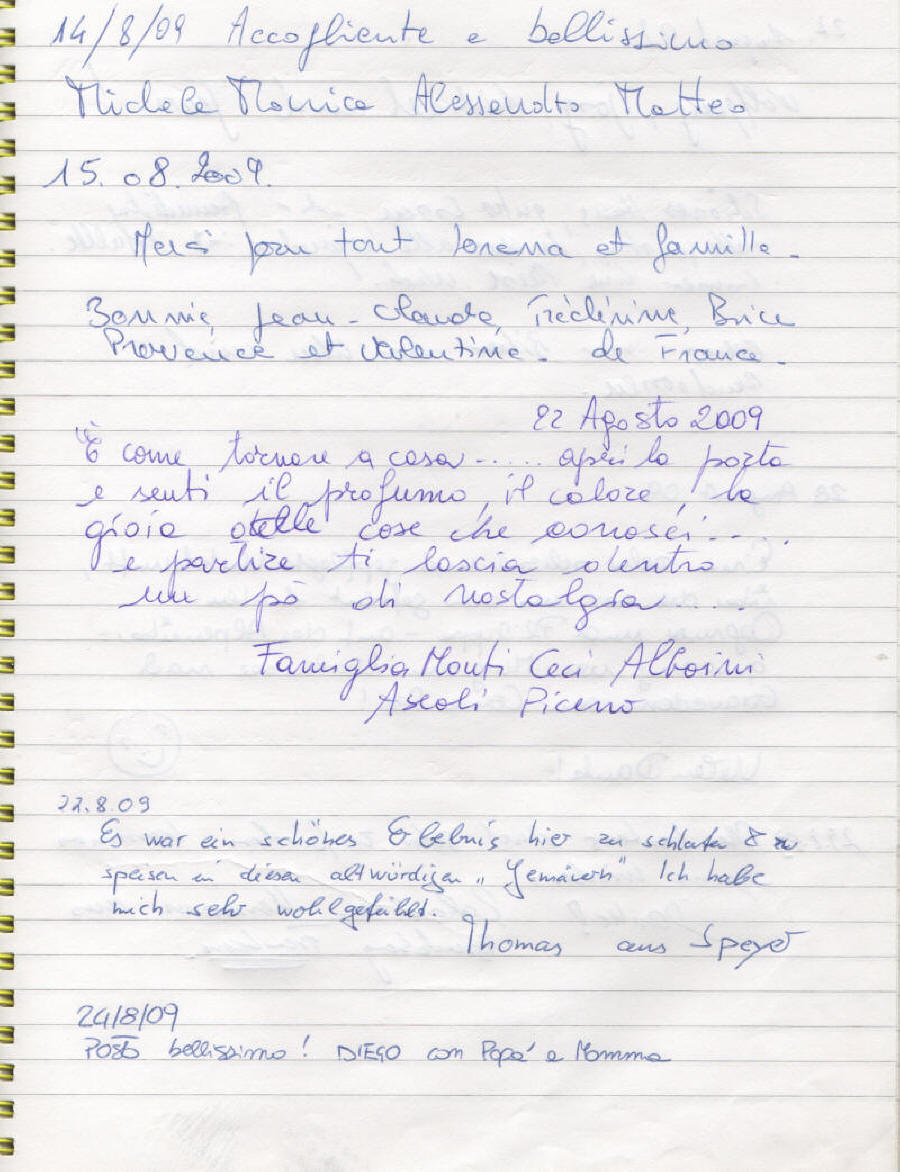 14/8/09 Accogliente e bellissimo
Michele Monica Alessandro Matteo
15.08.2009.
Merci pour tout Lorena et famille.
Bonnie, Jean-Claude, Brice
Provence et Valentine. de France.
22 Agosto 2009
È come tornare a casa..... apri la porta
e senti il profumo, il calore, la
gioia delle cose che conosci.....
e partire ti lascia dentro
un pò di nostalgia.....
Famiglia Monti Ceci Alboini
Ascoli Piceno
22.8.09
Es war ein schönes Erlebnis hier zu schlafen & zu
speisen in diesen altwürdigen „Gemäuern" Ich habe
mich sehr wohlgefühlt.
Thomas aus Speyer
24/8/09
POSTO bellissimo! DIEGO con Papa' e Mamma